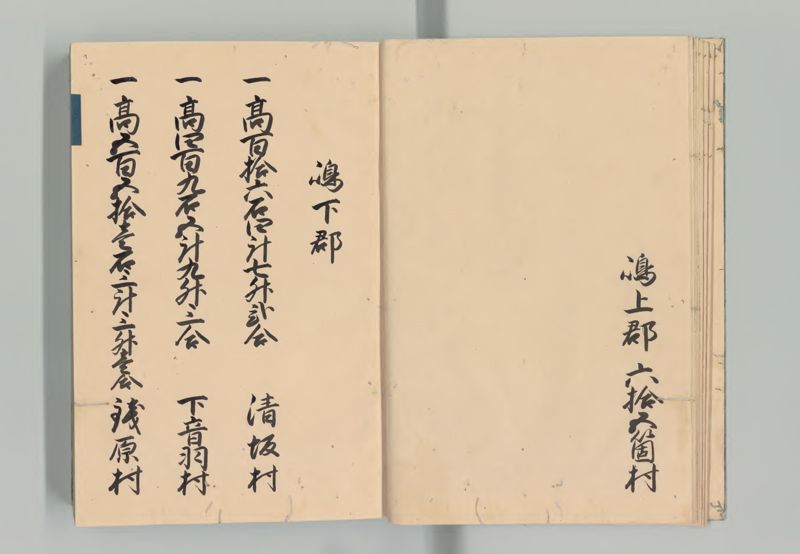 嶋上郡 六拾五箇村
嶋下郡
一 高百拾六石四斗七升弐合 清坂村
一 高四百九石五斗九升三合 下音羽村
一 高五百五拾壱石三斗三升壱合 銭原村